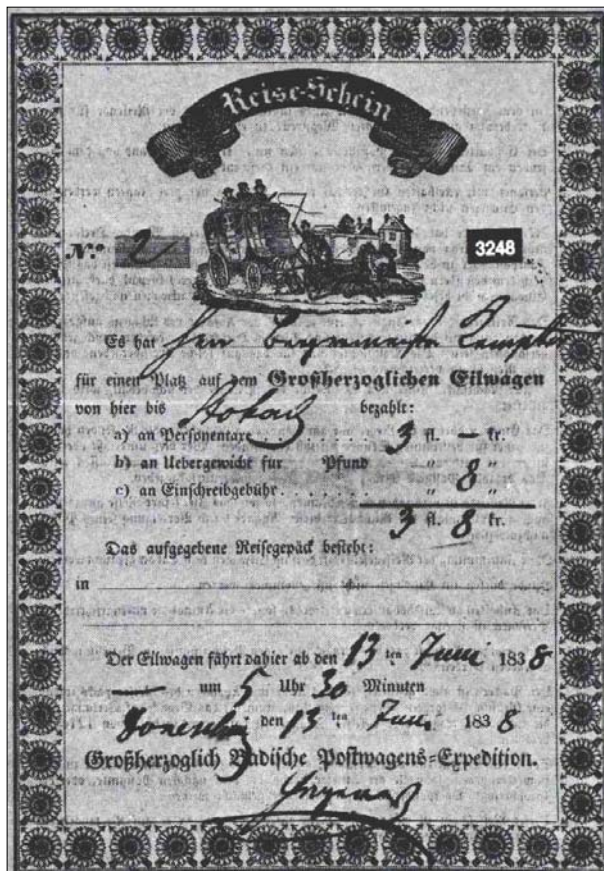 Reise-Schein
N.º 2
3248
Es hat Herr Burgermeister
für einen Platz auf dem Großherzoglichen Eilwagen
von hier bis Stokach bezahlt:
a) an Personentaxe . . . . . . . 3 fl. — kr.
b) an Uebergewicht für Pfund " 8 "
c) an Einschreibgebühr . . . . . . " "
3 fl. 8 kr.
Das aufgegebene Reisegepäck besteht:
in
Der Eilwagen fährt dahier ab den 13 ten Juni 1838
— um 5 Uhr 30 Minuten
den 13 ten Juni 1838
Großherzoglich Badische Postwagens-Expedition.